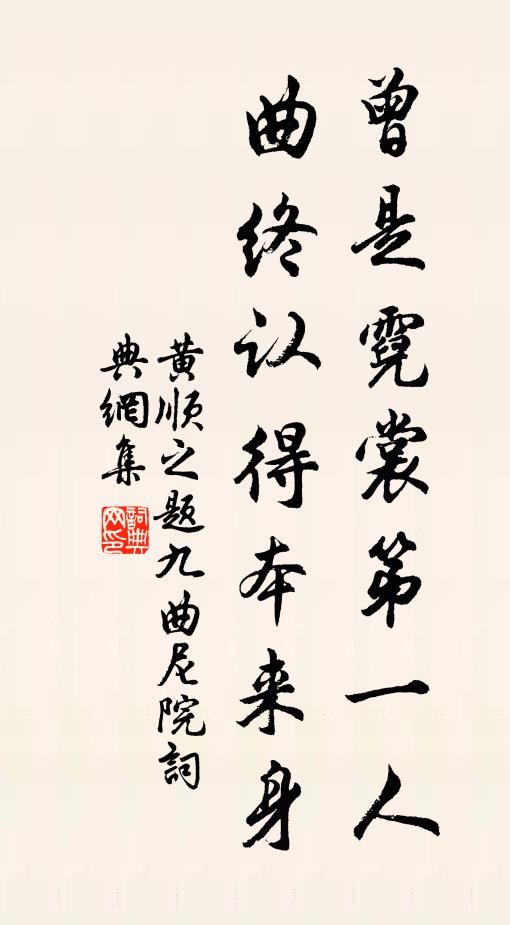 曾是霓裳第一人
曲终认得本来身
黄顺之题九曲尼院詞
典網集
詞典
网印